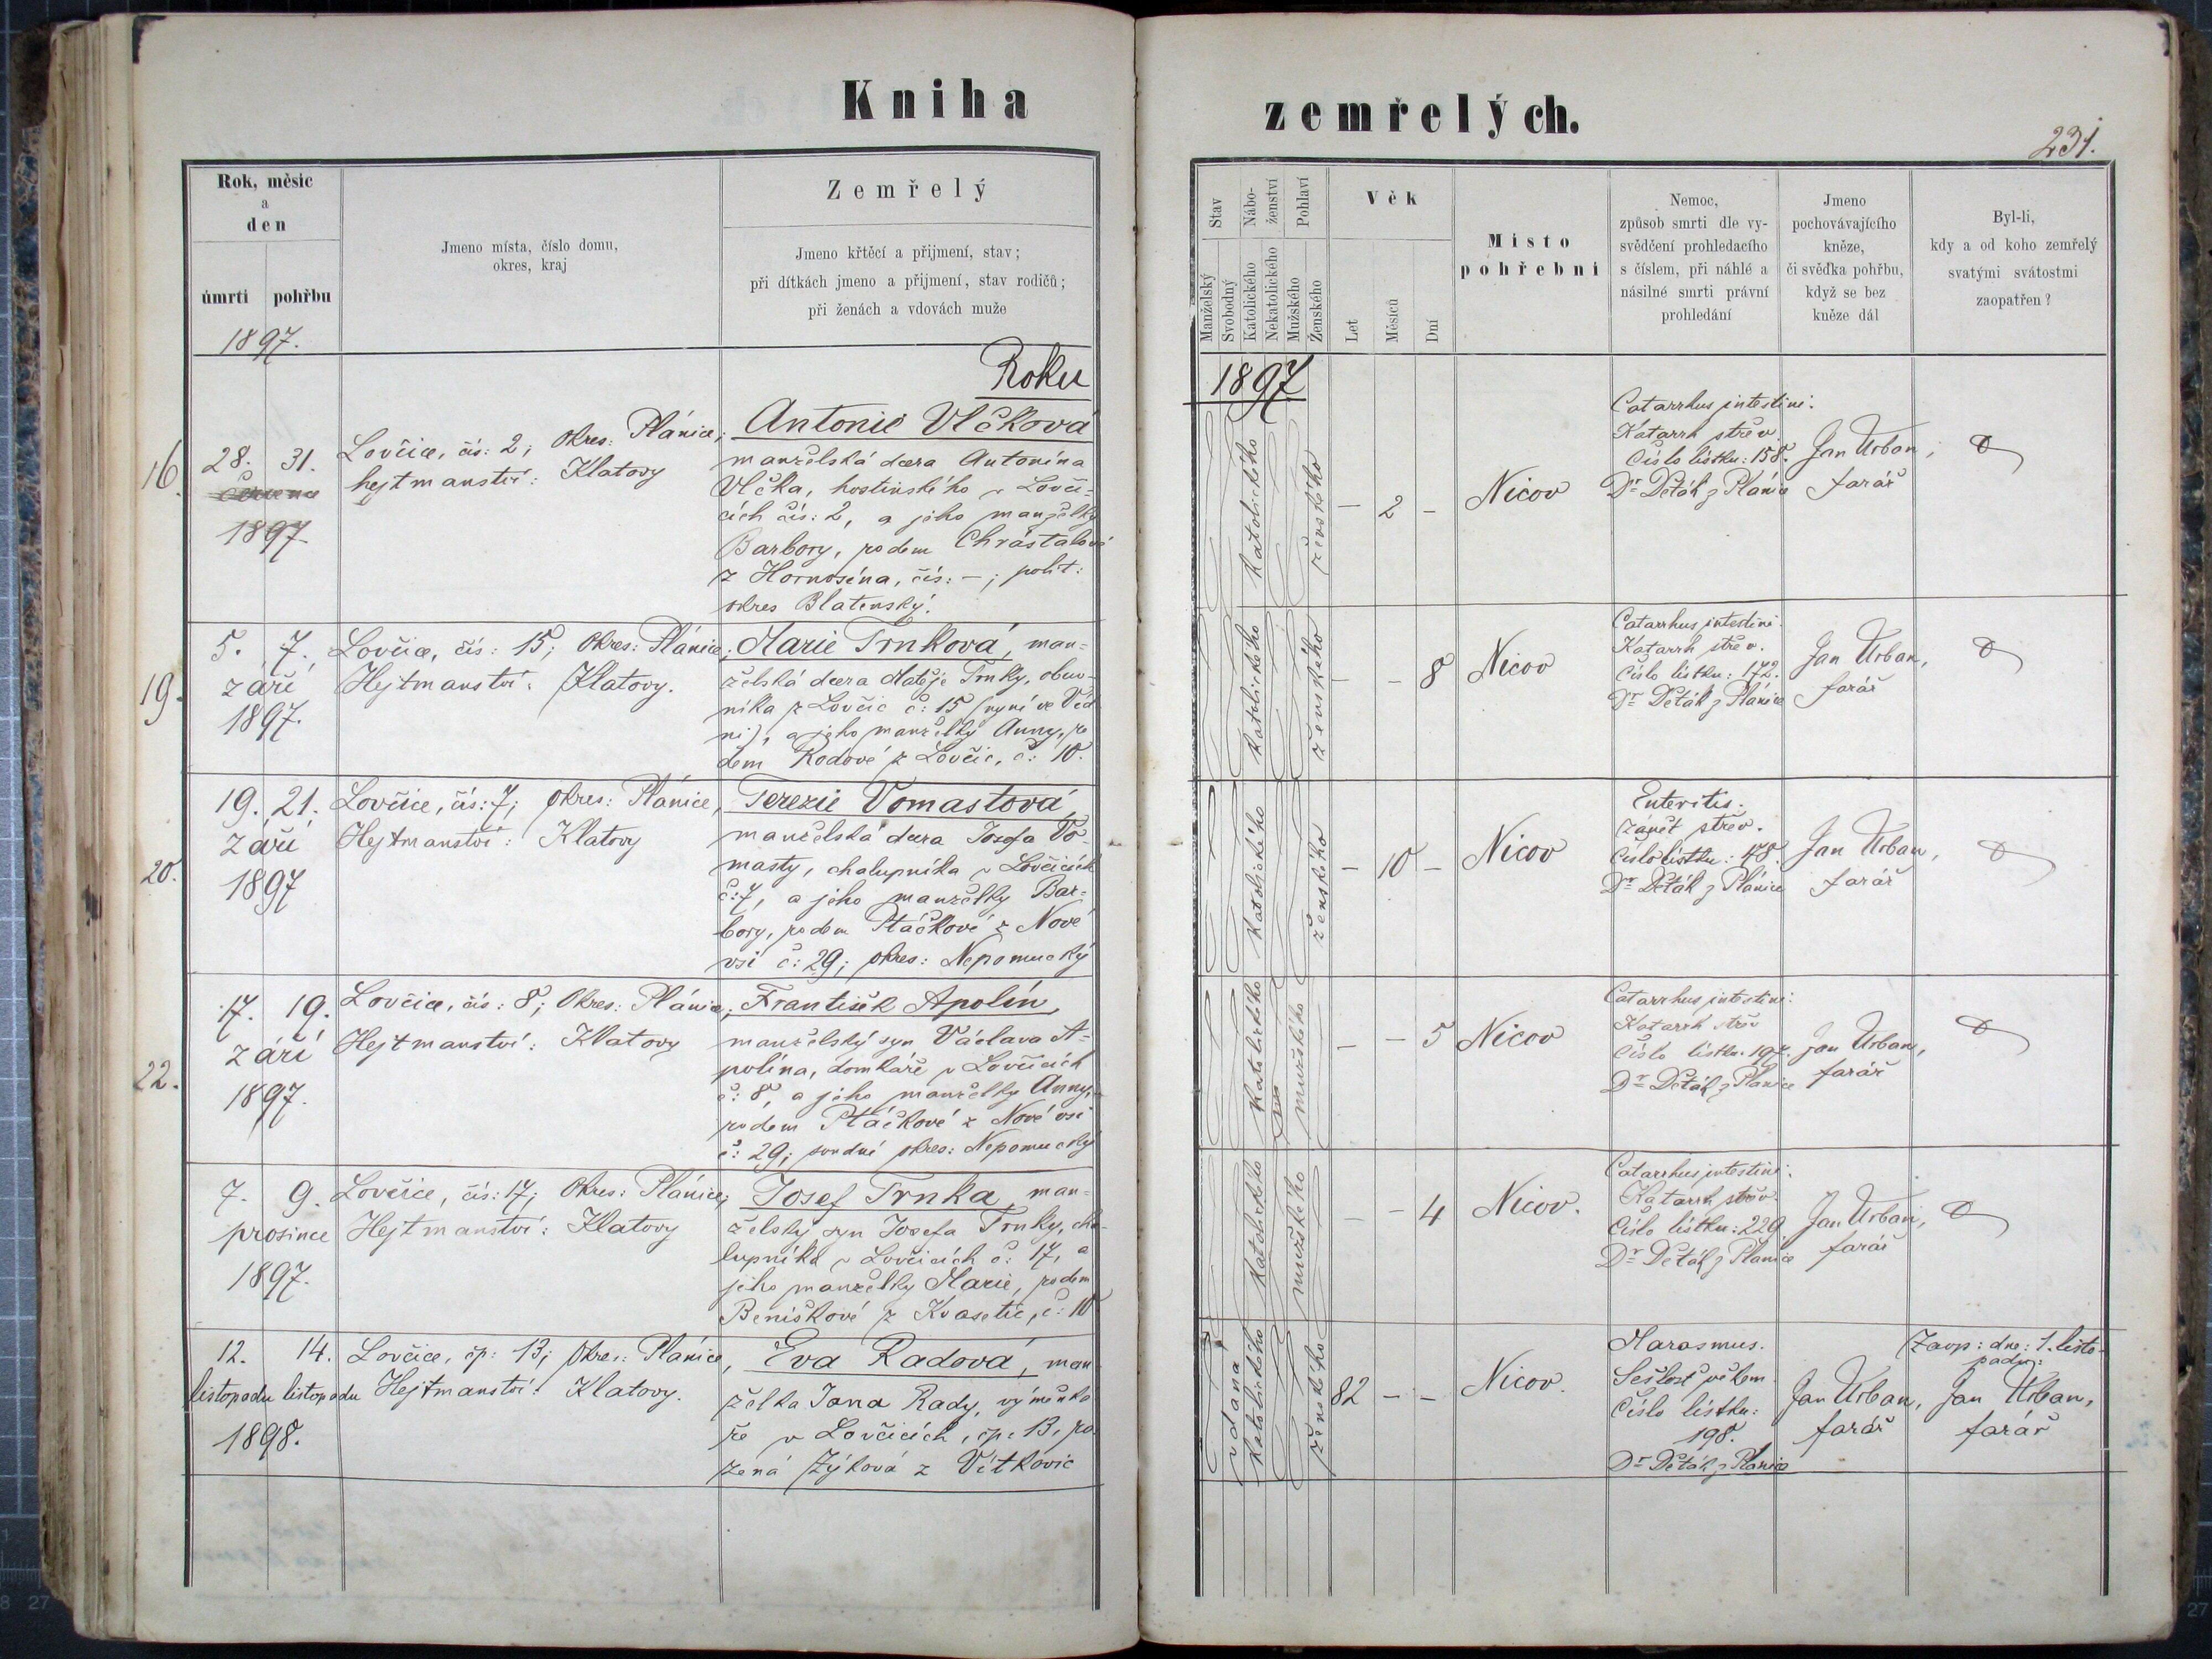 Kniha
zemřelých.
231.
Rok, měsíc
a
den
úmrtí
pohřbu
Jmeno místa, číslo domu,
okres, kraj
Zemřelý
Jmeno křtěcí a přijmení, stav;
při dítkách jmeno a přijmení, stav rodičů;
při ženách a vdovách muže
Stav
Manželský
Svobodný
Nábo-
ženství
Katolického
Nekatolického
Pohlaví
Mužského
Ženského
Věk
Let
Měsíců
Dní
Místo
pohřební
Nemoc,
způsob smrti dle vy-
svědčení prohledacího
s číslem, při náhlé a
násilné smrti právní
prohledání
Jmeno
pochovávajícího
kněze,
či svědka pohřbu,
když se bez
kněze dál
Byl-li,
kdy a od koho zemřelý
svatými svátostmi
zaopatřen?
1897.
Roku
1897
16.
28. 31.
1897
Lovčice, čís: 2; Okres: Plánice;
hejtmanství: Klatovy
Antonie Vlčková
manželská dcera Antonína
Vlčka, hostinského v Lovči-
cích čís: 2, a jeho manželky
Barbory, rodem Chrástalové
z Hornosína, čís: –; polit:
okres Blatenský.
katolického
ženského
– 2 –
Nicov
Catarrhus intestini.
Katarrh střev.
Číslo lístku: 158.
Dr Deták z Plánice
Jan Urban,
farář
19.
5. 7.
září
1897.
Lovčice, čís: 15; Okres: Plánice;
Hejtmanství: Klatovy.
Marie Trnková, man-
želská dcera Matěje Trnky, obuv-
níka z Lovčic č: 15 (nyní ve Víd-
ni), a jeho manželky Anny, ro
dem Radové z Lovčic, č: 10.
katolického
ženského
– – 8
Nicov
Catarrhus intestini.
Katarrh střev.
Číslo lístku: 172.
Dr Deták z Plánice
Jan Urban,
farář
20.
19. 21.
září
1897
Lovčice, čís: 7; Okres: Plánice,
Hejtmanství: Klatovy
Terezie Vomastová,
manželská dcera Josefa Vo-
masty, chalupníka v Lovčicích
č: 7, a jeho manželky Bar-
bory, rodem Ptáčkové z Nové
vsi č: 29; okres: Nepomucký
katolického
ženského
– 10 –
Nicov
Enteritis.
zánět střev.
Číslo lístku: 178.
Dr Deták z Plánice
Jan Urban,
farář
22.
17. 19.
září
1897.
Lovčice, čís: 8; Okres: Plánice;
Hejtmanství: Klatovy
František Apolín,
manželský syn Václava A-
polína, domkáře v Lovčicích
č: 8, a jeho manželky Anny,
rodem Ptáčkové z Nové vsi
č: 29; soudní okres: Nepomucký
katolického
mužského
– – 5
Nicov
Catarrhus intestini:
Katarrh střev
Číslo lístku: 197.
Dr Deták z Plánice
Jan Urban,
farář
7. 9.
prosince
1897.
Lovčice, čís: 17; Okres: Plánice;
Hejtmanství: Klatovy
Josef Trnka, man-
želský syn Josefa Trnky, cha-
lupníka v Lovčicích č: 17, a
jeho manželky Marie, rodem
Beniškové z Kvasetic, č: 10
katolického
mužského
– – 4
Nicov.
Catarrhus intestini:
Katarrh střev
Číslo lístku: 229.
Dr Deták z Plánice
Jan Urban,
farář
12. 14.
listopadu listopadu
1898.
Lovčice, čp: 13; Okres: Plánice,
Hejtmanství: Klatovy.
Eva Radová, man
želka Jana Rady, výměnka
ře v Lovčicích, čp: 13, ro
zená Zýková z Vítkovic
vdaná
katolického
ženského
82 – –
Nicov.
Marasmus.
Sešlost věkem.
Číslo lístku:
198.
Dr Deták z Plánice
Jan Urban,
farář
Zaop: dne: 1. listo-
padu:
Jan Urban,
farář